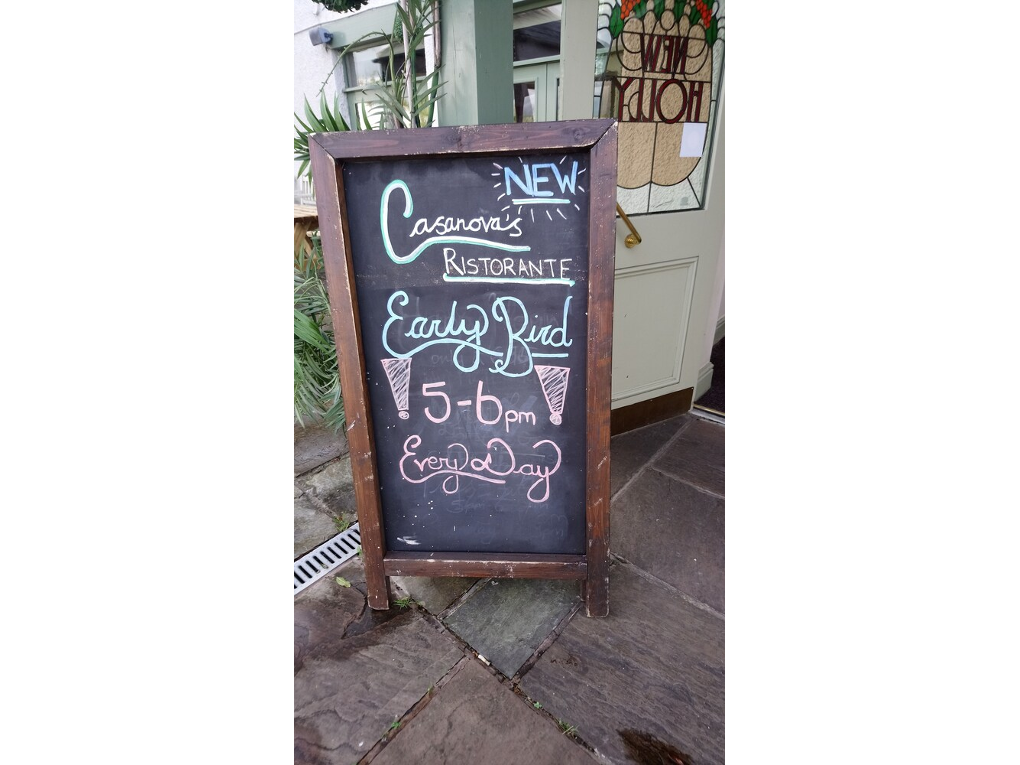 NEW
HOLLY
NEW
Casanova's
RISTORANTE
Early Bird
! 5-6pm !
Every Day